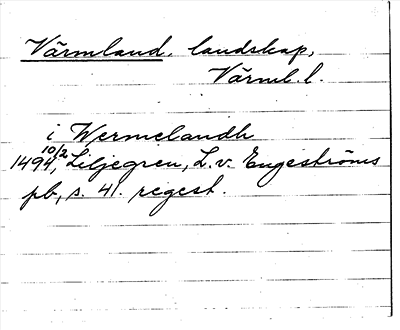 Värmland, landskap,
Värml. l.
i Wermelandh
10/2
1494, Liljegren, L. v. Engeströms
pb, s. 41. regest.